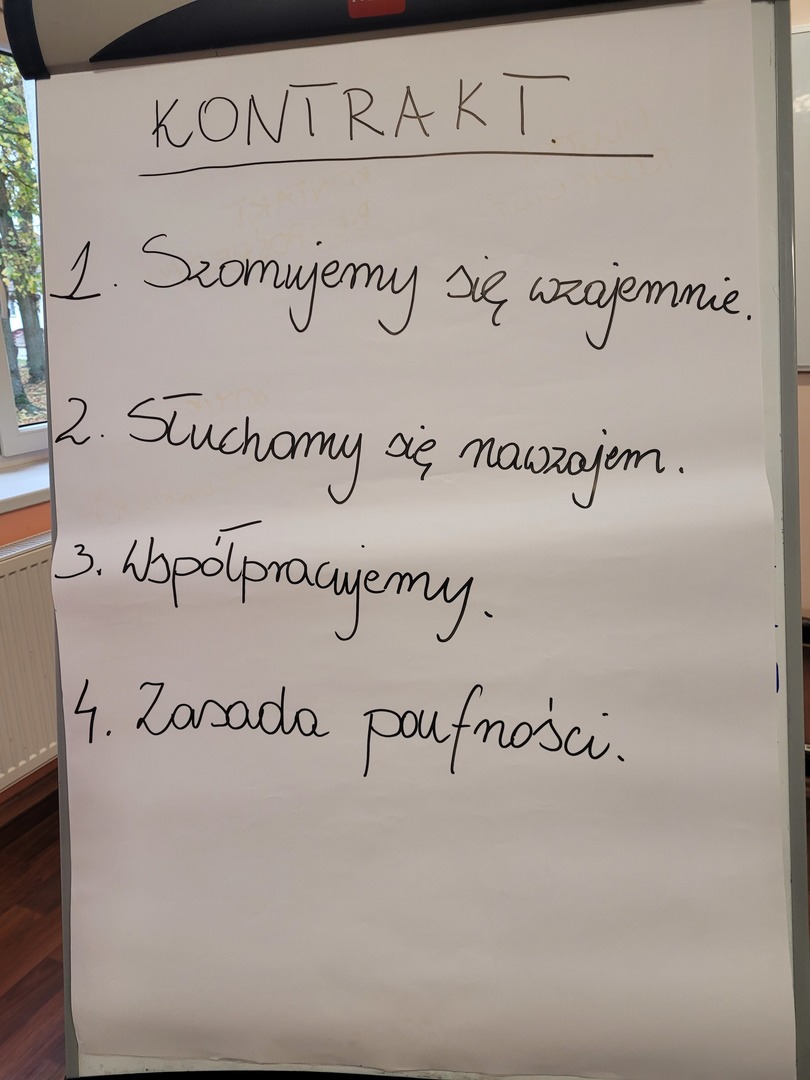 KONTRAKT.
1. Szanujemy się wzajemnie.
2. Słuchamy się nawzajem.
3. Współpracujemy.
4. Zasada poufności.